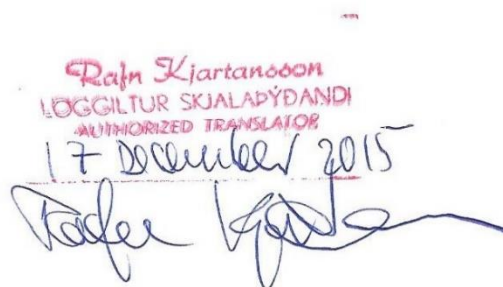 Rafn Kjartansson
LÖGGILTUR SKJALAÞÝÐANDI
AUTHORIZED TRANSLATOR
17 December 2015
Rafn Kjartansson